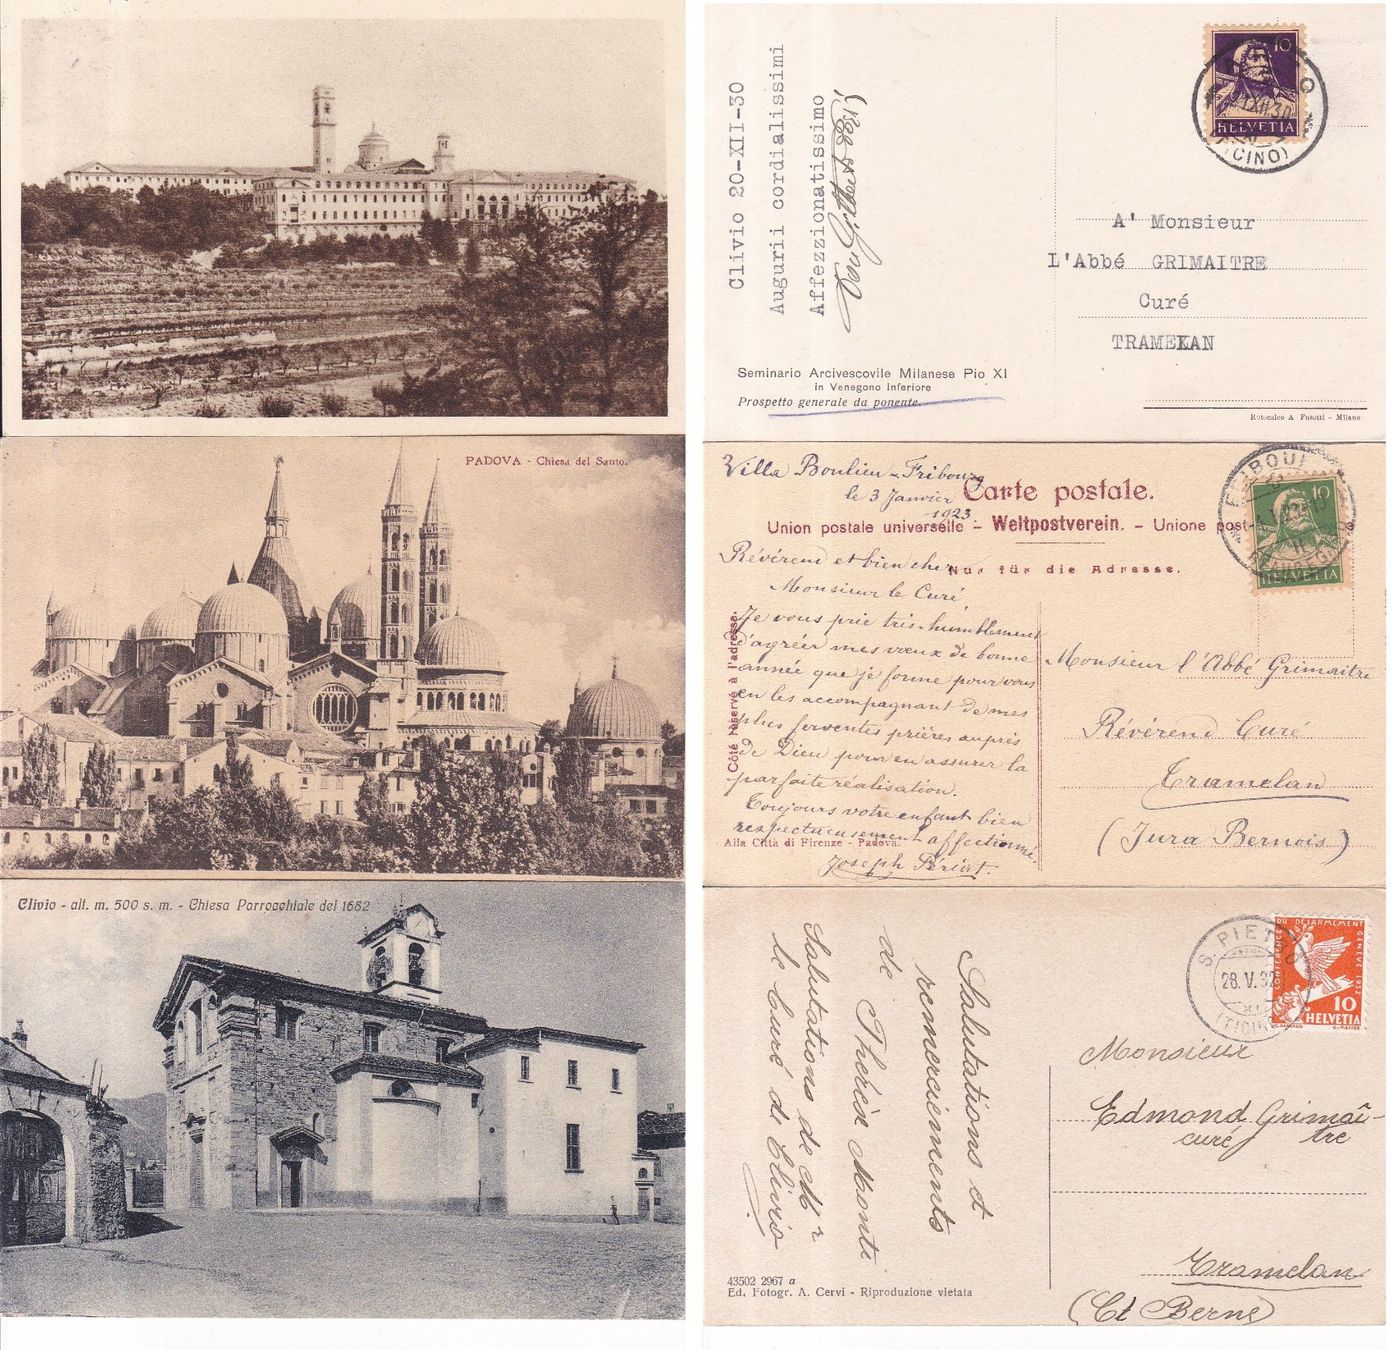 HELVETIA
10
(TICINO)
Clivio 20-XII-30
Augurii cordialissimi
Affezzionatissimo
A' Monsieur
L'Abbé GRIMAITRE
Curé
TRAMELAN
Seminario Arcivescovile Milanese Pio XI
in Venegono Inferiore
Prospetto generale da ponente.
Rotocalco A Fusetti - Milano
PADOVA - Chiesa del Santo.
Villa Beaulieu - Fribourg
le 3 Janvier
1923
Carte postale.
Union postale universelle - Weltpostverein. - Unione post
Nur für die Adresse.
Côté réservé à l'adresse.
10
HELVETIA
Révérend et bien cher
Monsieur le Curé,
Je vous prie très humblement
d'agréer mes vœux de bonne
année que je forme pour vous
en les accompagnant de mes
plus ferventes prières auprès
de Dieu pour en assurer la
parfaite réalisation.
Toujours votre enfant bien
respectueusement affectionné
Joseph Périat.
Alla Città di Firenze - Padova.
Monsieur l'Abbé Grimaitre
Révérend Curé
Tramelan
(Jura Bernois)
Clivio - alt. m. 500 s. m. - Chiesa Parrocchiale del 1682
Salutations et
remerciements
de Thérèse Monti
Salutations de Mr
le Curé di Clivio
S. PIETRO
28.V.32
XI
(TICINO)
CONFÉRENCE DU DÉSARMEMENT GENÈVE 1932
10
HELVETIA
Monsieur
Edmond Grimaî-
curé tre
Tramelan
(Ct Berne)
43502 2967 a
Ed. Fotogr. A. Cervi - Riproduzione vietata